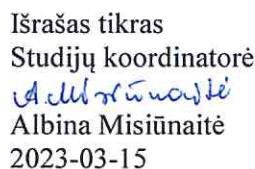 Išrašas tikras
Studijų koordinatorė
A. Misiūnaitė
Albina Misiūnaitė
2023-03-15